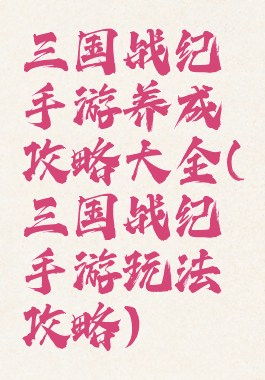 三国战纪
手游养成
攻略大全(
三国战纪
手游玩法
攻略)